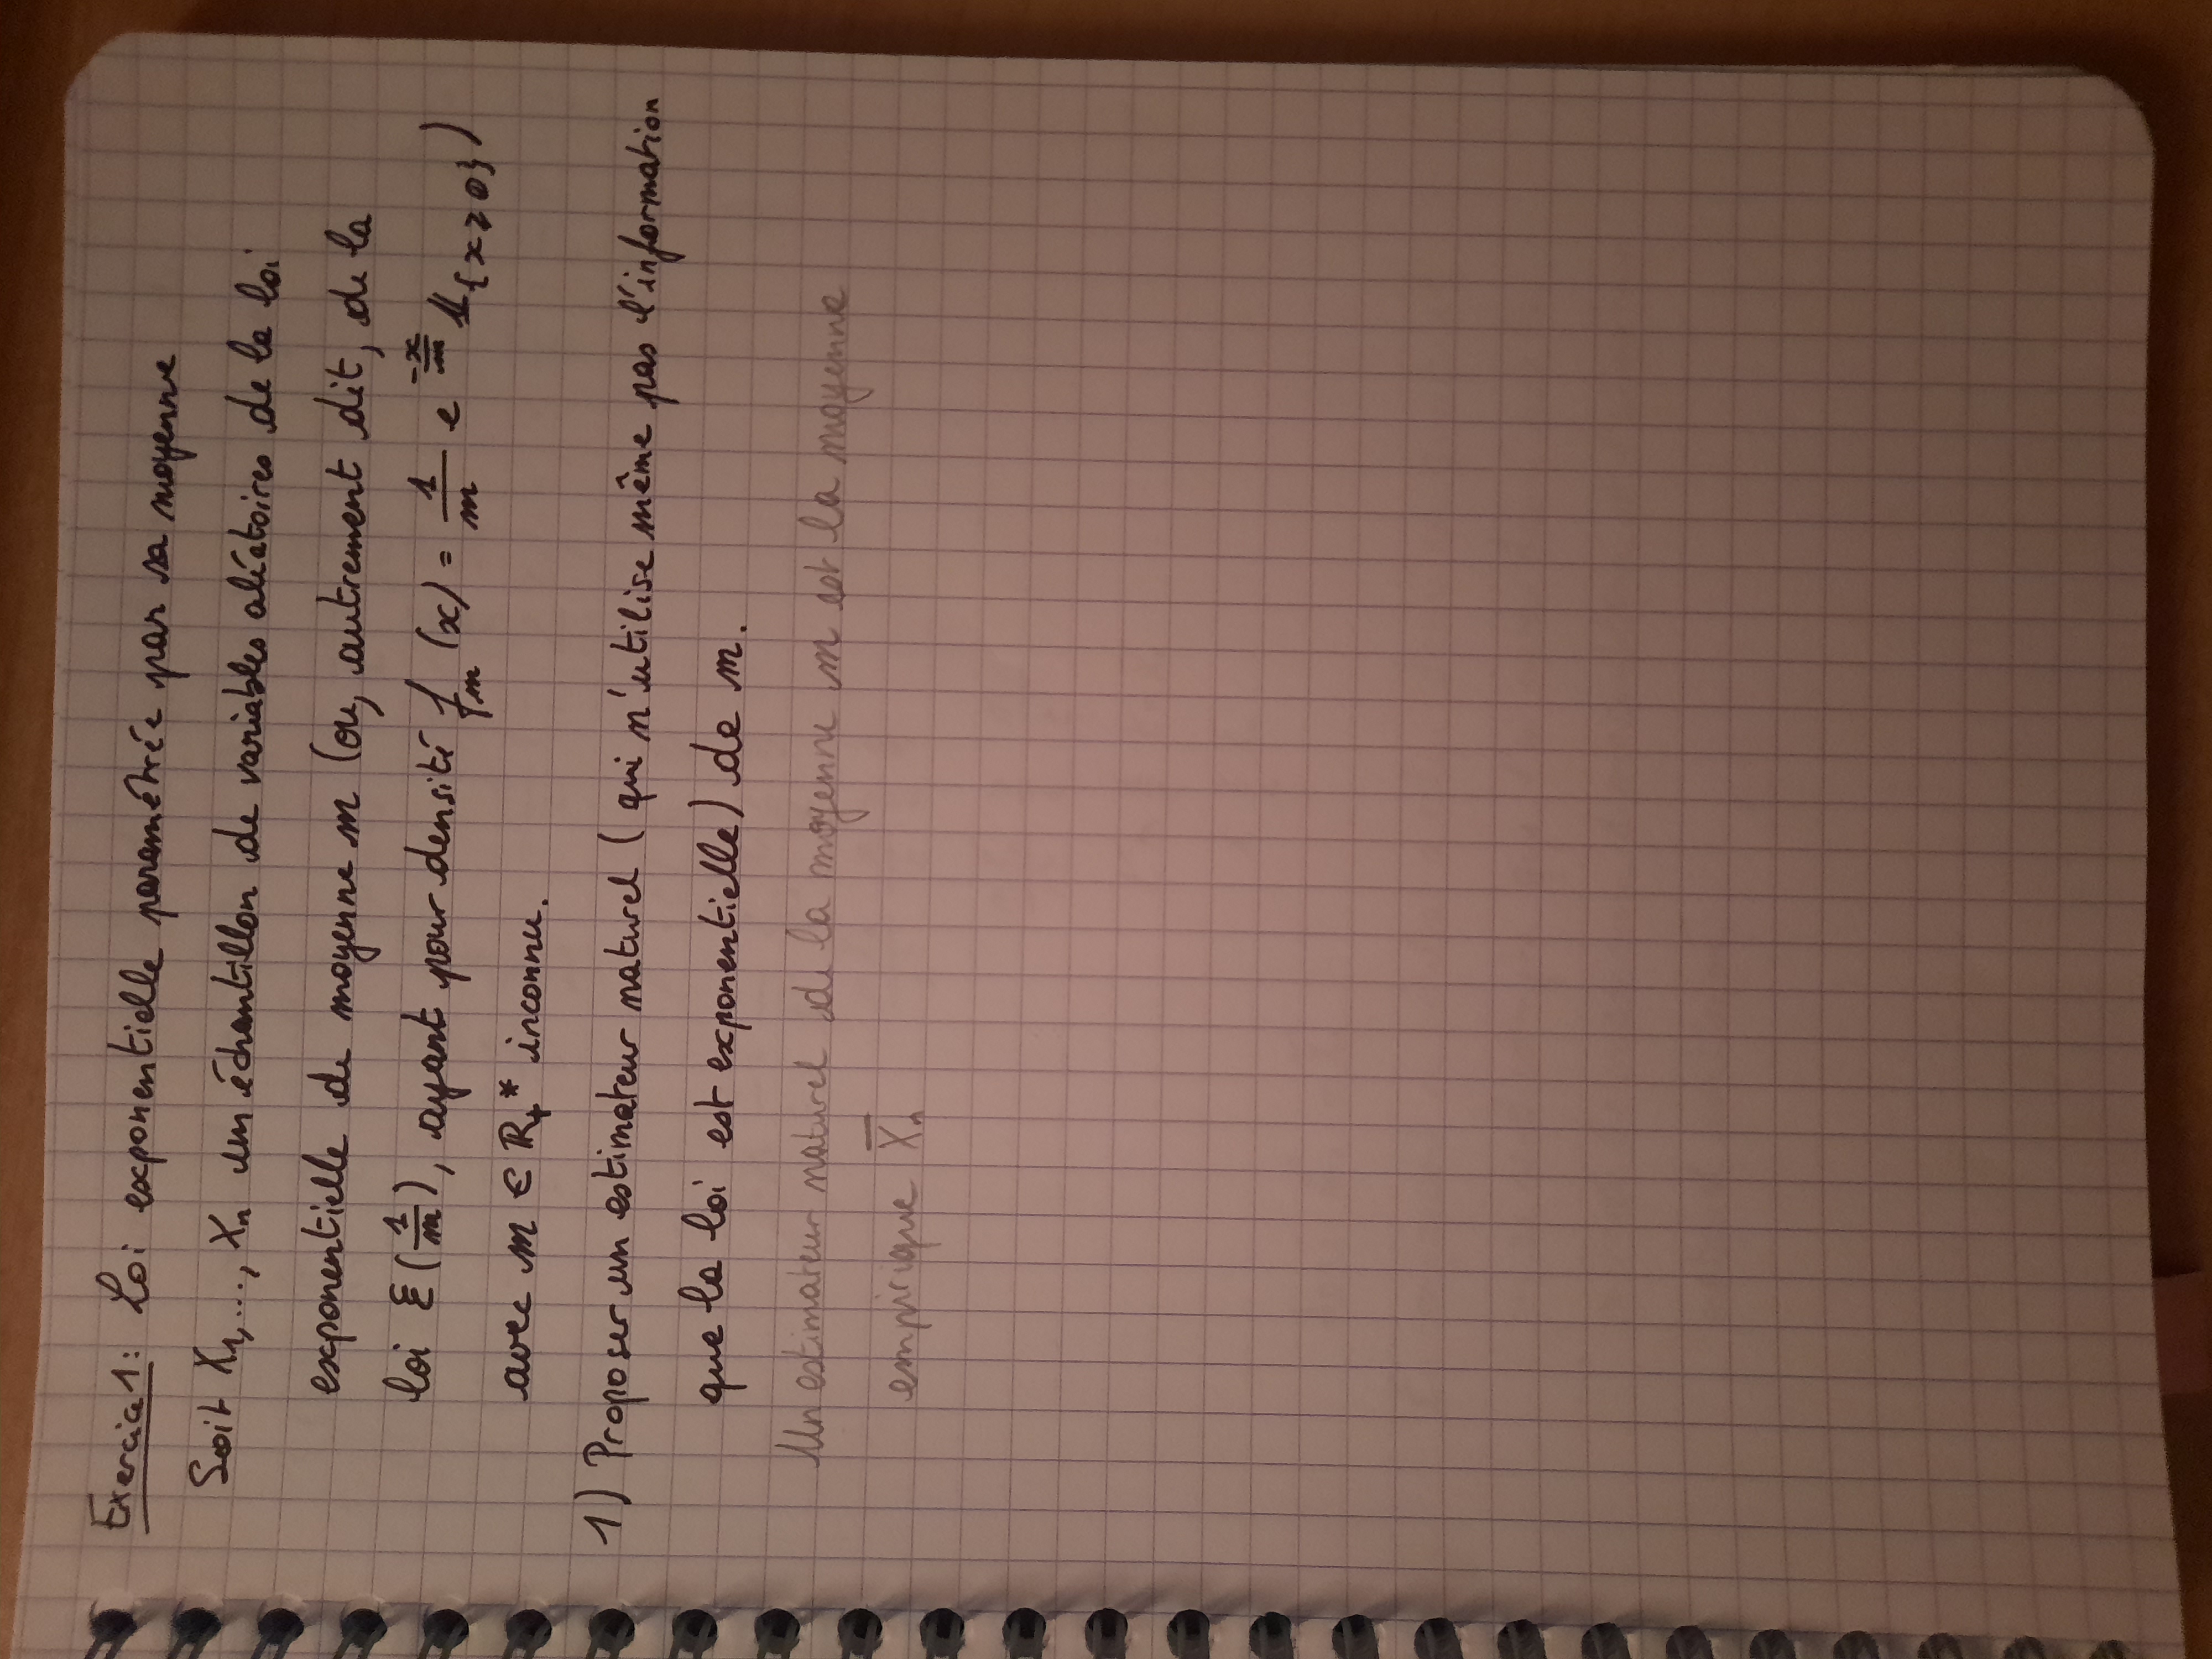 Exercice 1 : Loi exponentielle paramétrée par sa moyenne
Soit X₁, ..., Xₙ un échantillon de variables aléatoires de la loi
exponentielle de moyenne m (ou, autrement dit, de la
loi ℰ(1/m), ayant pour densité fₘ(x) = 1/m e^(-x/m) 𝟙_{x≥0})
avec m ∈ ℝ₊* inconnu.
1) Proposer un estimateur naturel (qui n'utilise même pas l'information
que la loi est exponentielle) de m.
Un estimateur naturel de la moyenne m est la moyenne
empirique X̄ₙ